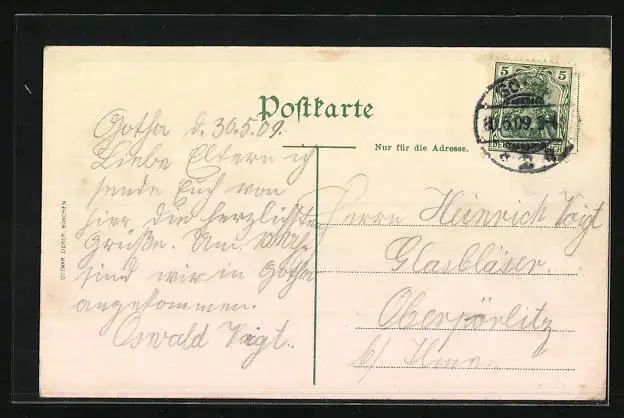 Postkarte
Nur für die Adresse.
Gotha d. 30.5.09.
Liebe Eltern ich
sende Euch von
hier die herzlichsten
Grüße. Um
sind wir in Gotha
angekommen.
Oswald Voigt.
Herrn Heinrich Voigt
Glasbläser.
Oberpörlitz
b/ Ilme.
OTTMAR ZIEHER, MÜNCHEN
5 5
5.09